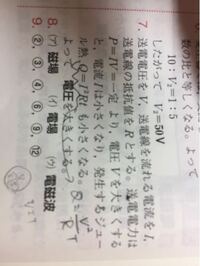 数の比と等しくなる。よって
10：V₂＝1：5
したがって V₂＝50V
7. 送電電圧をV、送電線を流れる電流をI、
送電線の抵抗値をRとする。送電電力は
P＝IV＝一定 より、電圧Vを大きくする
と、電流Iは小さくなり、発生するジュー
ル熱 Q＝I²Rtも小さくなる。
よって 電圧を大きくする。
8. (ア) 磁場 (イ) 電場 (ウ) 電磁波
9. ②, ③, ④, ⑥, ⑨, ⑫